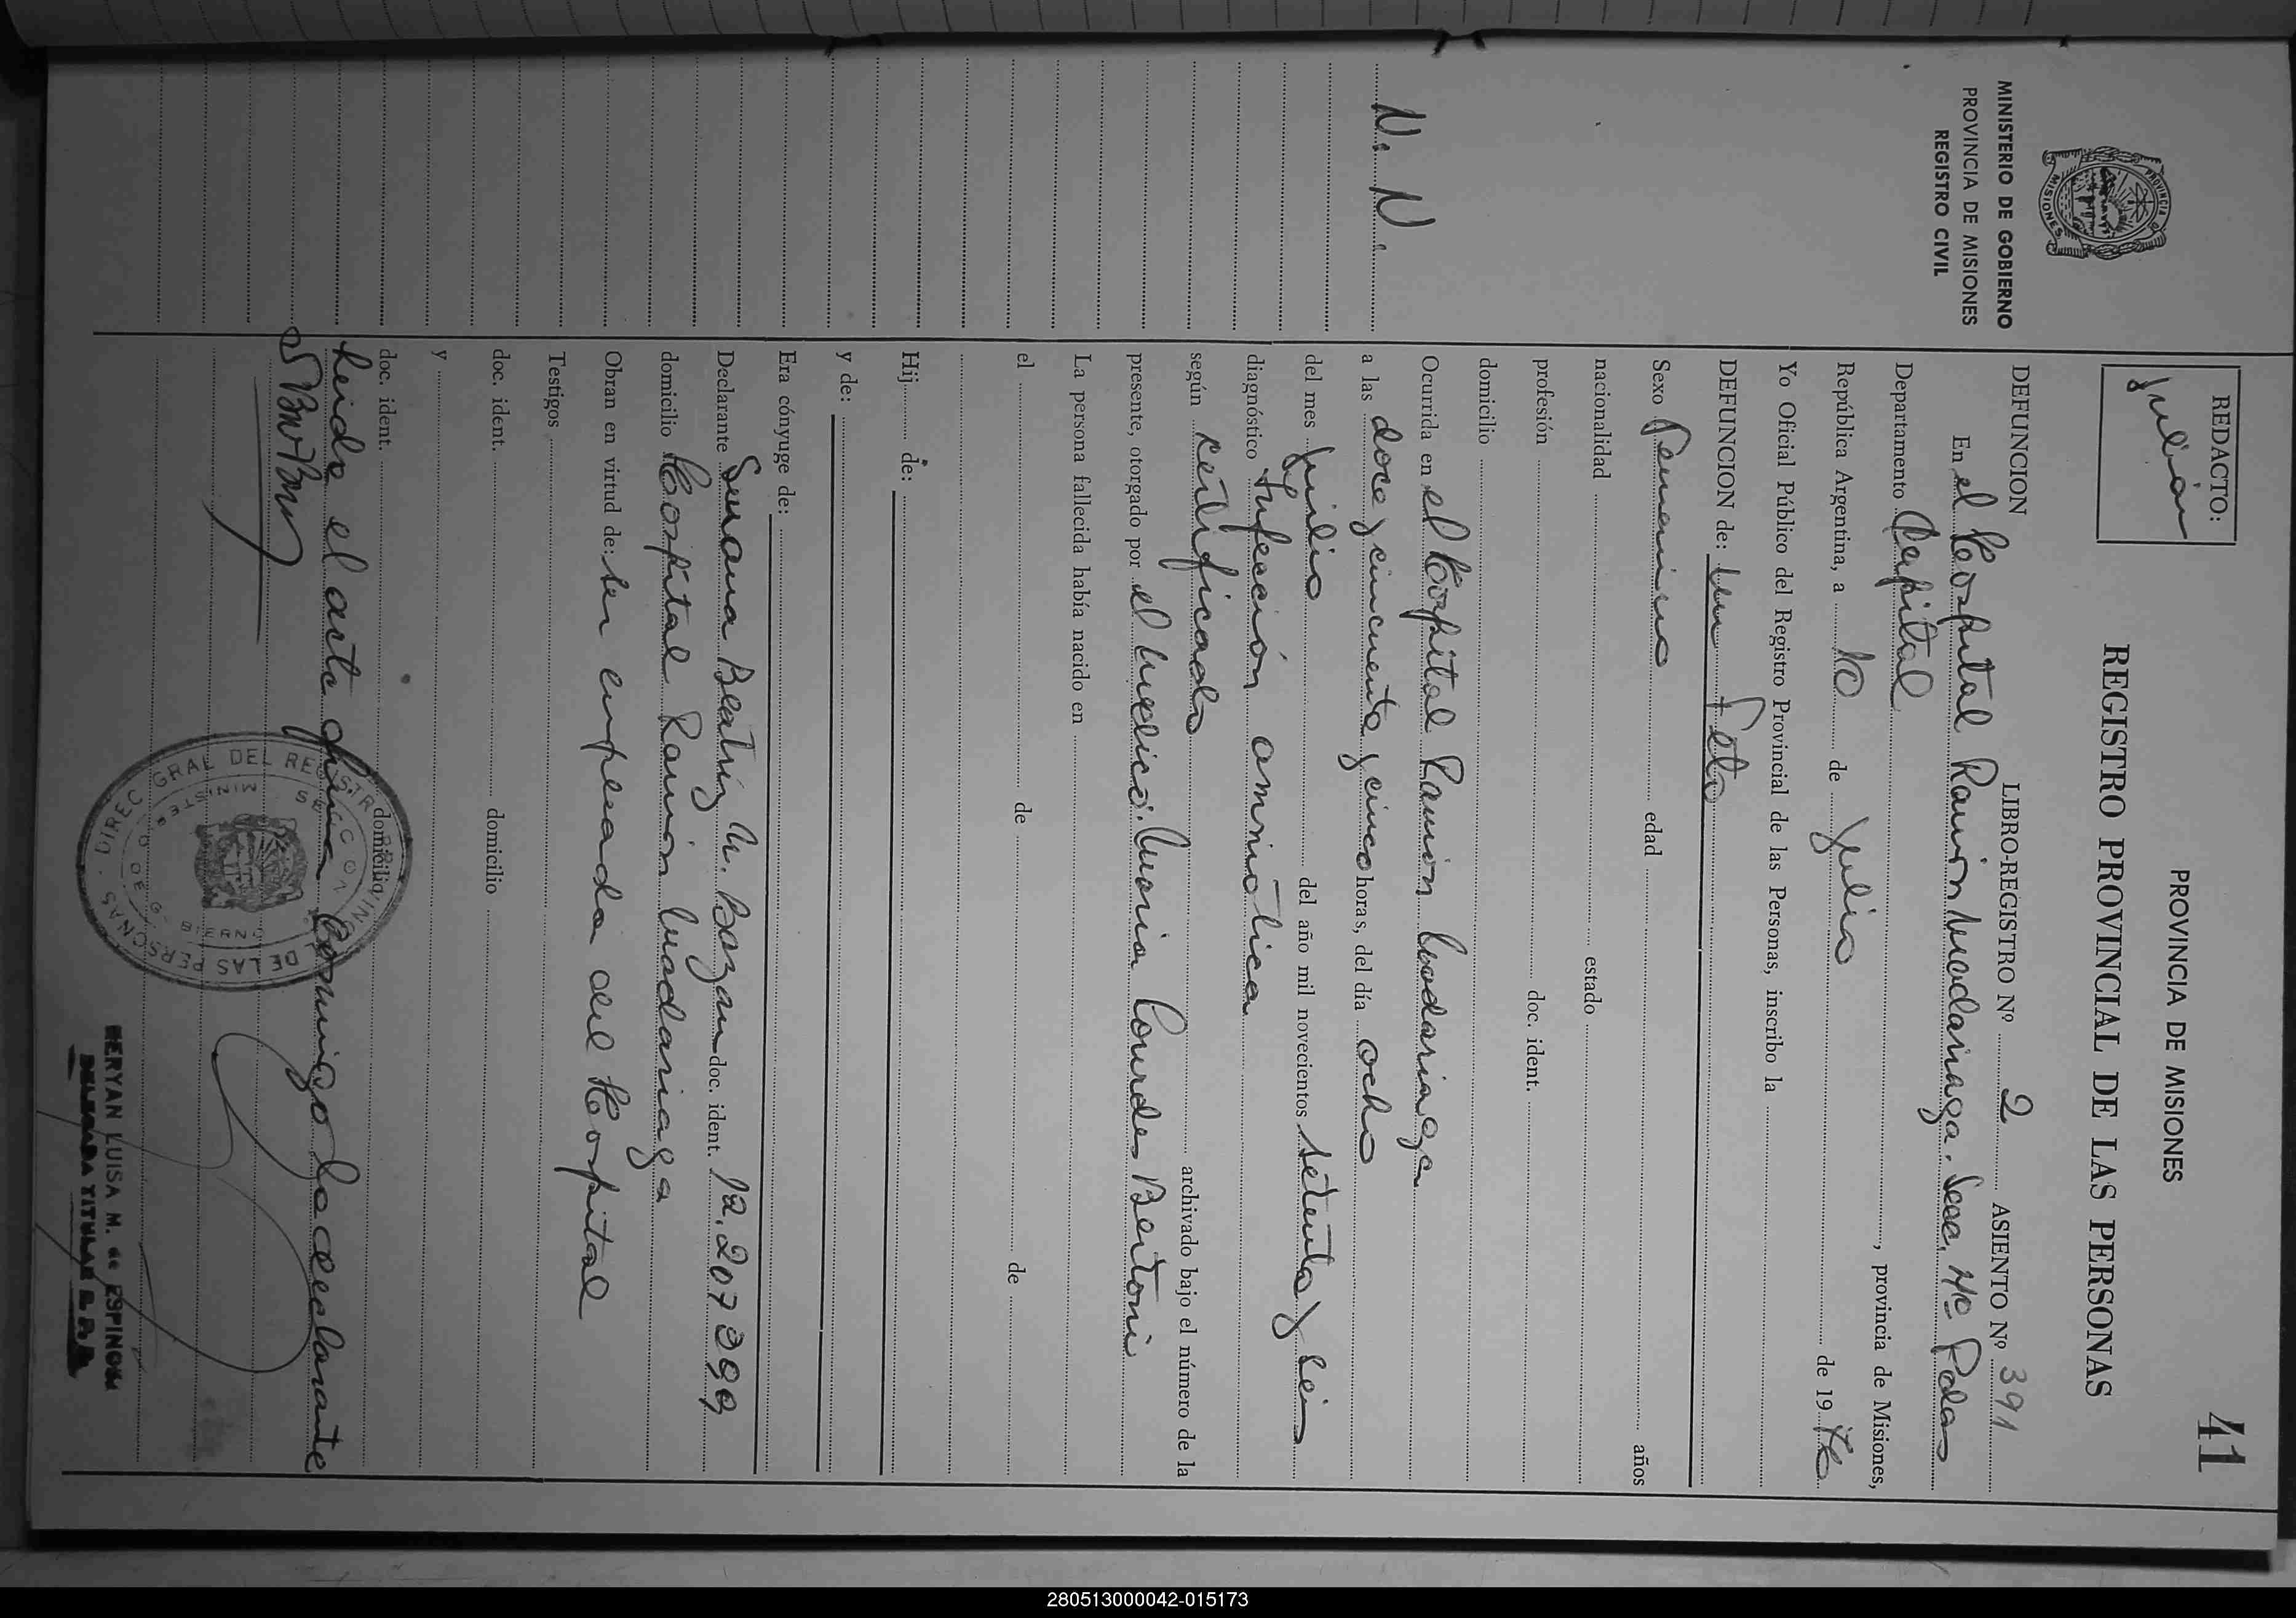 41
PROVINCIA DE MISIONES
REGISTRO PROVINCIAL DE LAS PERSONAS
REDACTO:
Julian
MINISTERIO DE GOBIERNO
PROVINCIA DE MISIONES
REGISTRO CIVIL
N. N.
DEFUNCION LIBRO-REGISTRO Nº 2 ASIENTO Nº 391
En el Hospital Ramón Madariaga. Secc. Mc Pdas
Departamento Capital, provincia de Misiones,
República Argentina, a 10 de Julio de 1976
Yo Oficial Público del Registro Provincial de las Personas, inscribo la
DEFUNCION de: un Feto
Sexo Femenino edad años
nacionalidad estado
profesión doc. ident.
domicilio
Ocurrida en el Hospital Ramon Madariaga
a las doce y cincuenta y cinco horas, del día ocho
del mes Julio del año mil novecientos setenta y seis
diagnóstico Infección amniótica
según certificado archivado bajo el número de la
presente, otorgado por el médico: Maria Lourdes Bertoni
La persona fallecida había nacido en
el de de
Hij de:
y de:
Era cónyuge de:
Declarante Susana Beatriz M. Bozan doc. ident. 12.207.399
domicilio Hospital Ramón Madariaga
Obran en virtud de: ser empleada del Hospital
Testigos
doc. ident. domicilio
y
doc. ident. domicilio
Leida el acta firma conmigo la declarante
DIREC. GRAL DEL REGISTRO PROVINC. DE LAS PERSONAS
LUISA M. de ESPINOSA
DELEGADA TITULAR
280513000042-015173